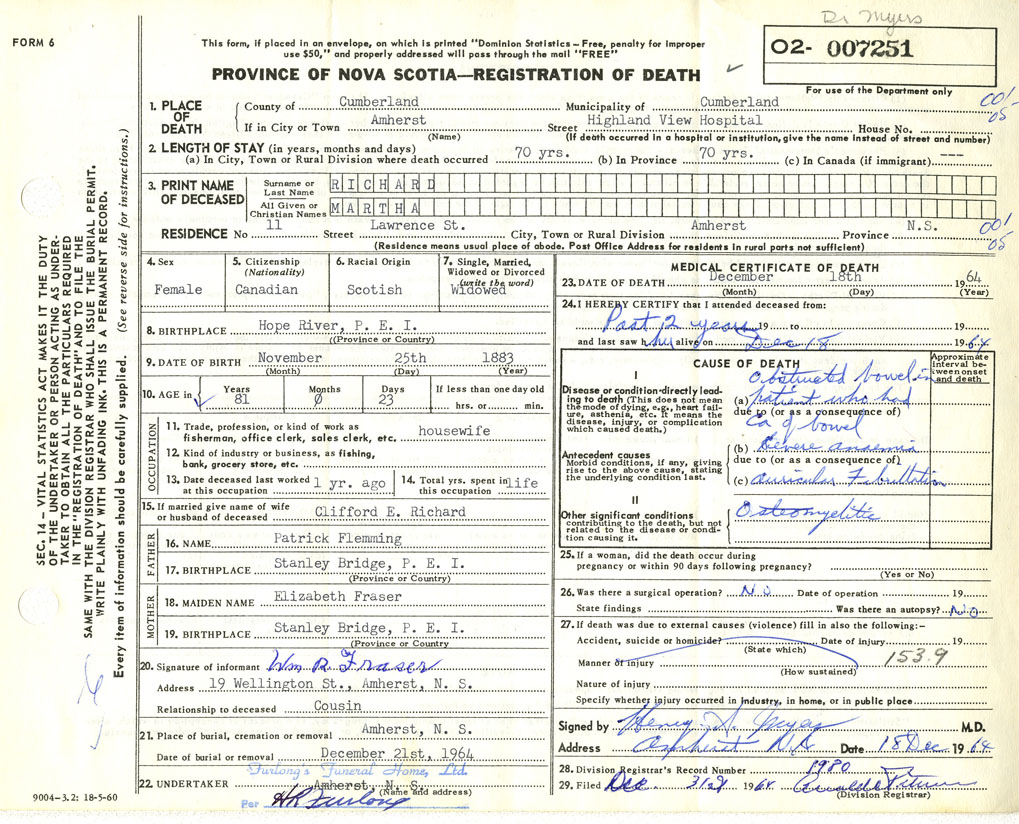 Dr Myers
FORM 6
This form, if placed in an envelope, on which is printed "Dominion Statistics – Free, penalty for improper
use $50," and properly addressed will pass through the mail "FREE"
02- 007251
PROVINCE OF NOVA SCOTIA—REGISTRATION OF DEATH
For use of the Department only
1. PLACE OF DEATH
County of Cumberland Municipality of Cumberland
001
05
If in City or Town Amherst Street Highland View Hospital House No.
(Name) (If death occurred in a hospital or institution, give the name instead of street and number)
2. LENGTH OF STAY (in years, months and days)
(a) In City, Town or Rural Division where death occurred 70 yrs. (b) In Province 70 yrs. (c) In Canada (if immigrant) ---
3. PRINT NAME OF DECEASED
Surname or Last Name RICHARD
All Given or Christian Names MARTHA
RESIDENCE No 11 Street Lawrence St. City, Town or Rural Division Amherst Province N.S.
001
05
(Residence means usual place of abode. Post Office Address for residents in rural parts not sufficient)
4. Sex
Female
5. Citizenship
(Nationality)
Canadian
6. Racial Origin
Scotish
7. Single, Married,
Widowed or Divorced
(write the word)
Widowed
8. BIRTHPLACE Hope River, P. E. I.
((Province or Country)
9. DATE OF BIRTH November 25th 1883
(Month) (Day) (Year)
10. AGE in Years 81 Months 0 Days 23 If less than one day old
hrs. or min.
OCCUPATION
11. Trade, profession, or kind of work as
fisherman, office clerk, sales clerk, etc. housewife
12. Kind of industry or business, as fishing,
bank, grocery store, etc.
13. Date deceased last worked
at this occupation 1 yr. ago
14. Total yrs. spent in
this occupation life
15. If married give name of wife
or husband of deceased Clifford E. Richard
FATHER
16. NAME Patrick Flemming
17. BIRTHPLACE Stanley Bridge, P. E. I.
(Province or Country)
MOTHER
18. MAIDEN NAME Elizabeth Fraser
19. BIRTHPLACE Stanley Bridge, P. E. I.
(Province or Country)
20. Signature of informant Wm R Fraser
Address 19 Wellington St., Amherst, N. S.
Relationship to deceased Cousin
21. Place of burial, cremation or removal Amherst, N. S.
Date of burial or removal December 21st, 1964
Furlong's Funeral Home, Ltd.
22. UNDERTAKER Amherst, N. S.
(Name and address)
Per HR Furlong
MEDICAL CERTIFICATE OF DEATH
23. DATE OF DEATH December 18th 1964
(Month) (Day) (Year)
24. I HEREBY CERTIFY that I attended deceased from:
Past 2 years 19 to 19
and last saw her alive on Dec 18 1964
CAUSE OF DEATH
Approximate interval between onset and death
I
Disease or condition directly leading to death (This does not mean the mode of dying, e.g., heart failure, asthenia, etc. It means the disease, injury, or complication which caused death.)
Obstructed bowel in
(a) patient who had
due to (or as a consequence of)
Ca of bowel
Antecedent causes
Morbid conditions, if any, giving rise to the above cause, stating the underlying condition last.
(b) Severe anaemia
due to (or as a consequence of)
(c) Auricular Fibrillation
II
Other significant conditions
contributing to the death, but not related to the disease or condition causing it.
Osteomyelitis
25. If a woman, did the death occur during
pregnancy or within 90 days following pregnancy?
(Yes or No)
26. Was there a surgical operation? No Date of operation 19
State findings Was there an autopsy? No
27. If death was due to external causes (violence) fill in also the following:-
Accident, suicide or homicide? Date of injury 19
(State which)
153.9
Manner of injury
(How sustained)
Nature of injury
Specify whether injury occurred in industry, in home, or in public place
Signed by Henry A. Myers M.D.
Address Amherst N.S. Date 18 Dec 1964
28. Division Registrar's Record Number 1980
29. Filed Dec. 21st 1964
(Division Registrar)
9004-3.2: 18-5-60
SEC. 14 — VITAL STATISTICS ACT MAKES IT THE DUTY
OF THE UNDERTAKER OR PERSON ACTING AS UNDER-
TAKER TO OBTAIN ALL THE PARTICULARS REQUIRED
IN THE "REGISTRATION OF DEATH" AND TO FILE THE
SAME WITH THE DIVISION REGISTRAR WHO SHALL ISSUE THE BURIAL PERMIT.
WRITE PLAINLY WITH UNFADING INK. THIS IS A PERMANENT RECORD.
Every item of information should be carefully supplied. (See reverse side for instructions.)